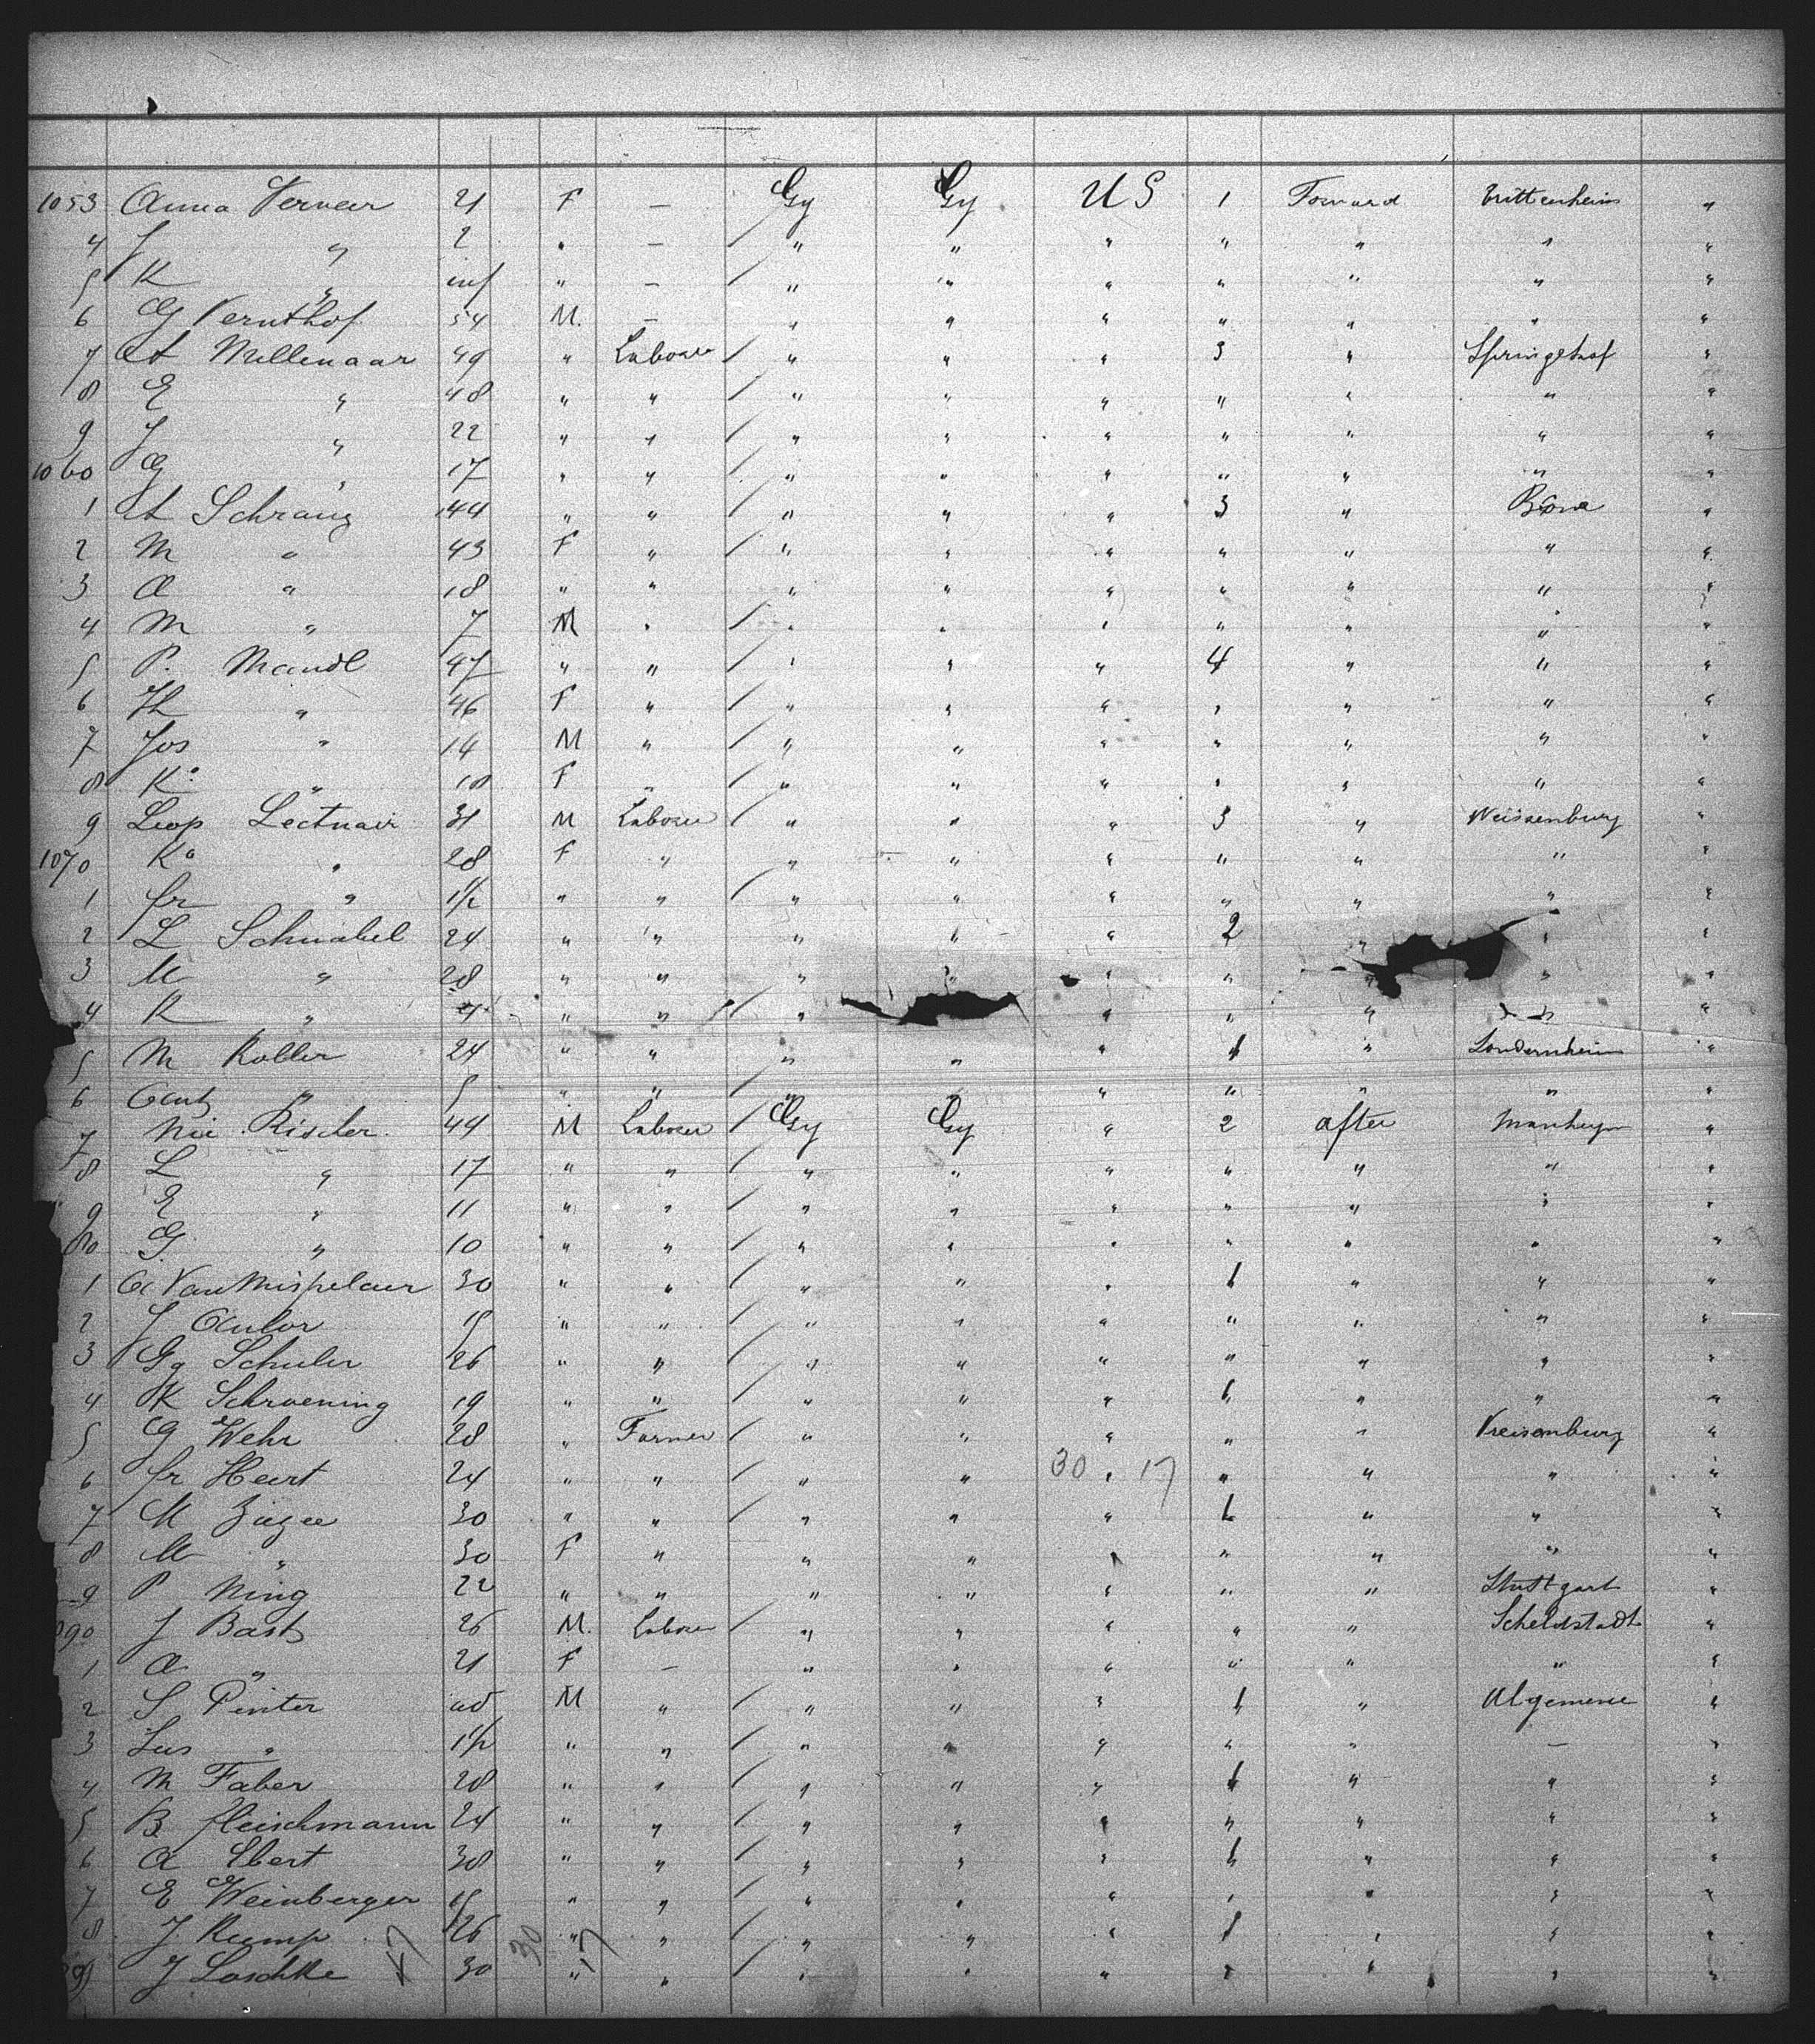 1053 Anna Verveer 21 F — Gy Gy US 1 Forward Trittenheim "
4 J " 2 " — / " " " " " " "
5 K " inf " — / " " " " " " "
6 G Vernthof 54 M. — " " " " " " "
7 A Mellenaar 49 " Laborer / " " " 3 " "
8 E " 48 " " / " " " " " " "
9 J " 22 " " / " " " " " " "
1060 G " 17 " " / " " " " " " "
1 A Schranz 44 " " / " " " 3 " "
2 M " 43 F " / " " " " " " "
3 A " 18 " " " " " " " " "
4 M " 7 M " / " " " " " " "
5 P. Mandl 47 " " / " " " 4 " " "
6 Th " 46 F " / " " " " " " "
7 Jos " 14 M " / " " " " " " "
8 K " 10 F " / " " " " " " "
9 Leop 31 M Laborer / " " " 3 " Weissenburg "
1070 K " 28 F " " " " " " " "
1 fr " 1½ " " / " " " " " " "
2 L Schnabel 24 " " " " " 2 " " "
3 M " 28 " " " " " " " " "
4 K " " " / " " " " " "
5 M Koller 24 " " " " " 1 " Londernheim "
6 " 5 " " / " " " " " " "
7 Nic Rischer 44 M Laborer / Gy Gy " 2 after Manheym "
8 L " 17 " " / " " " " " " "
9 E " 11 " " / " " " " " " "
80 G " 10 " " / " " " " " " "
1 Van Mispelaer 30 " " / " " " 1 " " "
2 J 19 " " / " " " " " " "
3 Gg Schuler 26 " " / " " " " " " "
4 K Schroening 19 " " / " " " 1 " " "
5 G Wehr 28 " Farmer / " " " " " "
6 fr Heert 24 " " / " " 30 " 17 " " " "
7 M 30 " " / " " " 1 " " "
8 M " 30 F " " " " " " " "
9 P Ning 22 " " " " " " " Stuttgart "
1090 J Bast 26 M. Laborer / " " " " " Scheldstadt "
1 A " 21 F — " " " " " " "
2 S Pinter ad M " / " " " 1 " Algemeine "
3 " 1½ " " / " " " " " — "
4 M Faber 28 " " / " " " 1 " " "
5 B fleischmann 24 " " / " " " " " " "
6 A Ebert 30 " " / " " " 1 " " "
7 E Weinberger 19 " " / " " " " " " "
8 J. Kump 26 30 " 17 " / " " " 1 " " "
99 J Loschke 30 " " / " " " " " " "